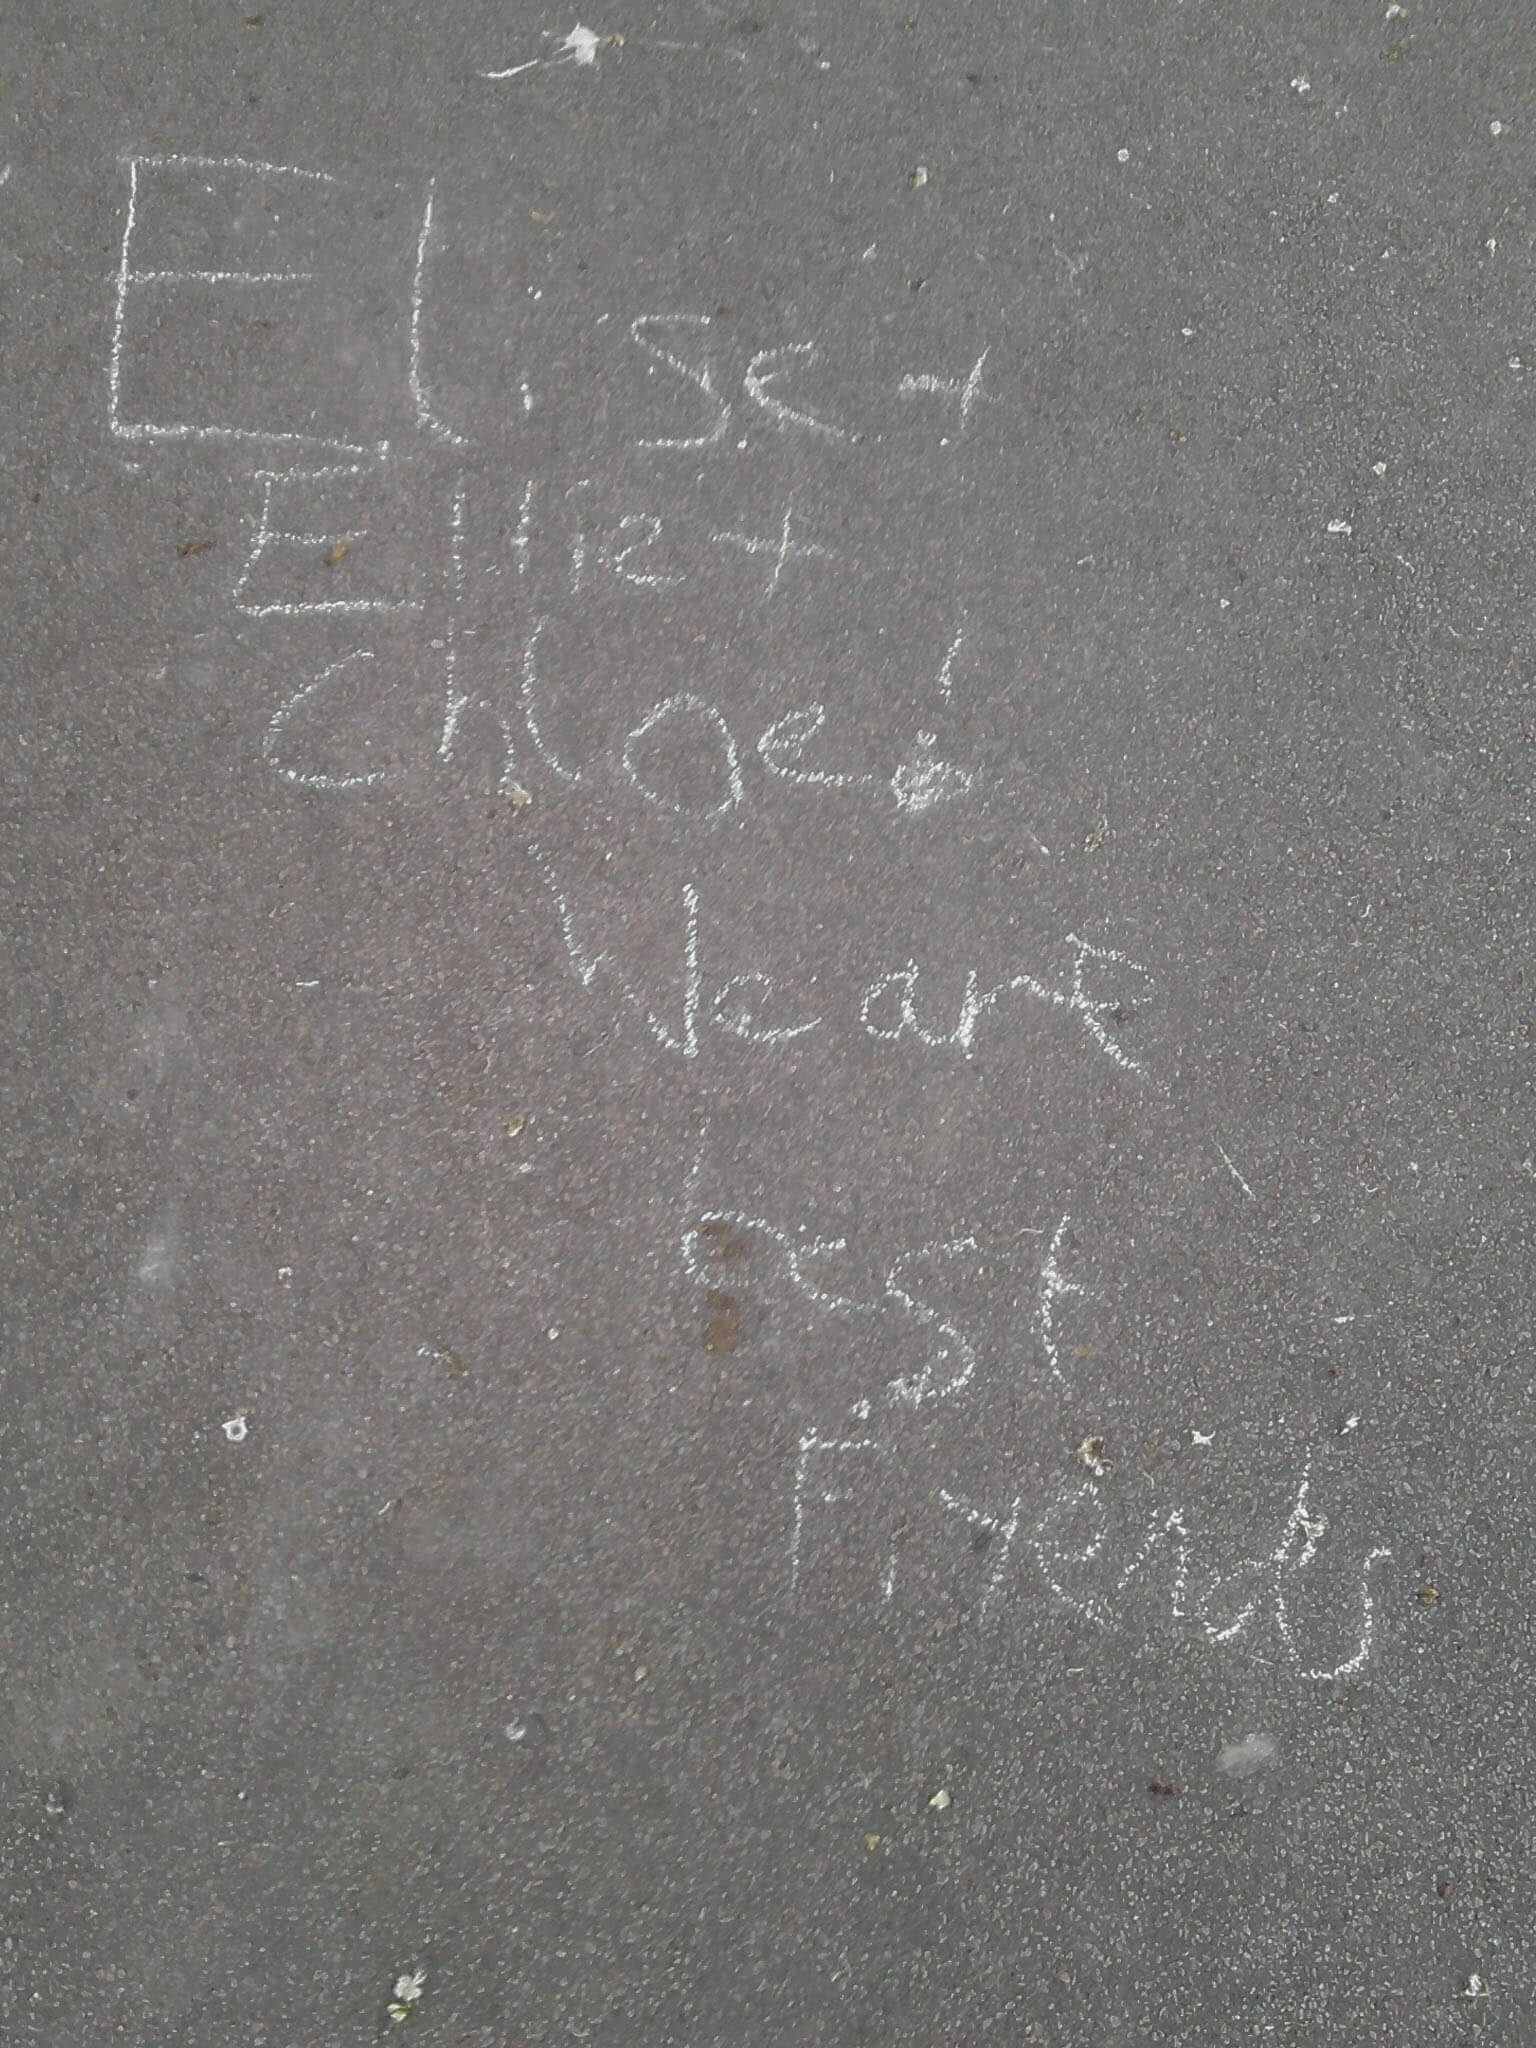 Elise +
Ellie +
Chloe!
We are
best
Friends